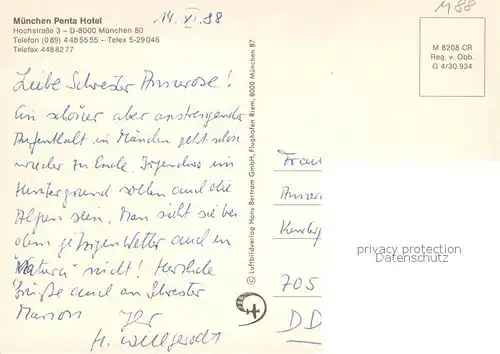 München Penta Hotel
Hochstraße 3 – D-8000 München 80
Telefon (089) 4485555 – Telex 5-29046
Telefax 448 82 77
14. XI. 88
M 88
M 8208 CR
Reg. v. Obb.
G 4/30.934
Liebe Schwester Annerose!
Ein schöner aber anstrengender
Aufenthalt in München geht schon
wieder zu Ende. Irgendwo im
Hintergrund sollen auch die
Alpen sein. Man sieht sie bei
dem jetzigen Wetter auch in
"Natura" nicht! Herzliche
Grüße auch an Schwester
Marion Ihr
H. Willgerodt
© Luftbildverlag Hans Bertram GmbH, Flughafen Riem, 8000 München 87
Frau
705
DD
privacy protection
Datenschutz